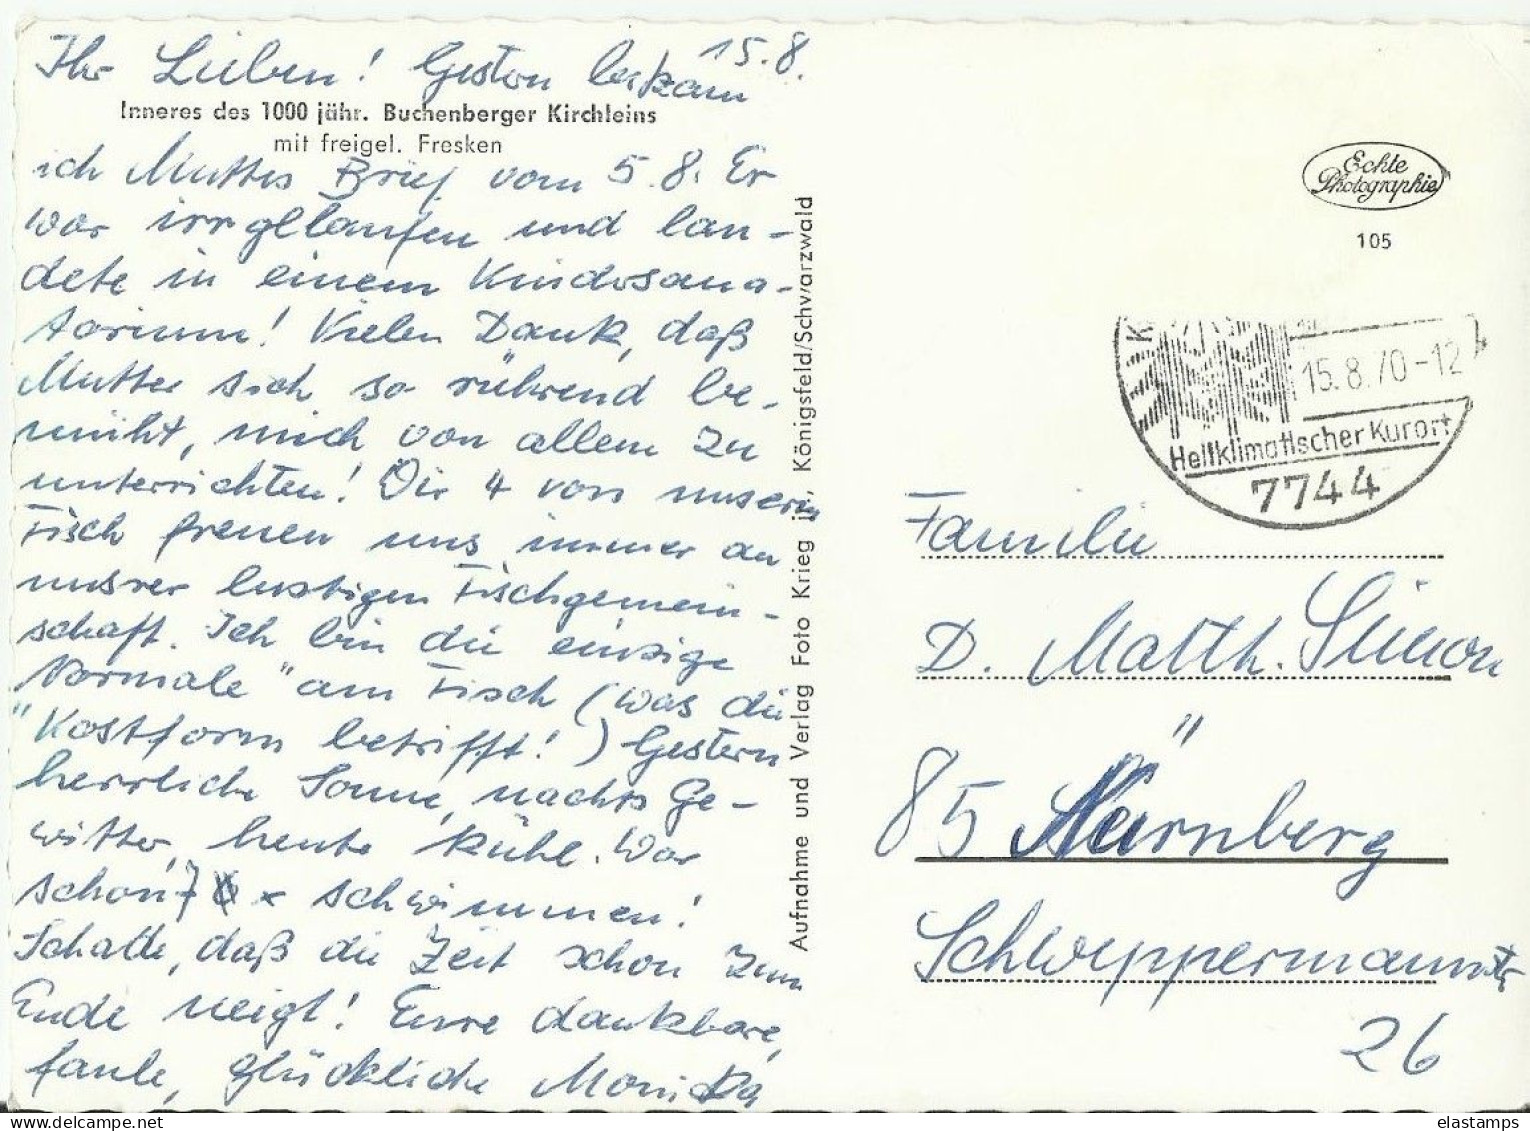 15.8.
Ihr Lieben! Gestern bekam
Inneres des 1000 jähr. Buchenberger Kirchleins
mit freigel. Fresken
ich Mutters Brief vom 5.8. Er
war irrgelaufen und lan-
dete in einem Kindersana-
torium! Vielen Dank, daß
Mutter sich so rührend be-
müht, mich von allem zu
unterrichten! Die 4 von unserm
Tisch freuen uns immer an
unsrer lustigen Tischgemein-
schaft. Ich bin die einzige
"Normale" am Tisch (was die
"Kostform betrifft!) Gestern
herrliche Sonne, nachts Ge-
witter, heute kühl. War
schon 7 x schwimmen!
Schade, daß die Zeit schon zum
Ende neigt! Eure dankbare,
faule, glückliche Monika
Aufnahme und Verlag Foto Krieg in Königsfeld/Schwarzwald
Echte
Photographie
105
15.8.70-12
Heilklimatischer Kurort
7744
Familie
D. Matth. Simon
85 Nürnberg
Schweppermannstr
26
elastamps